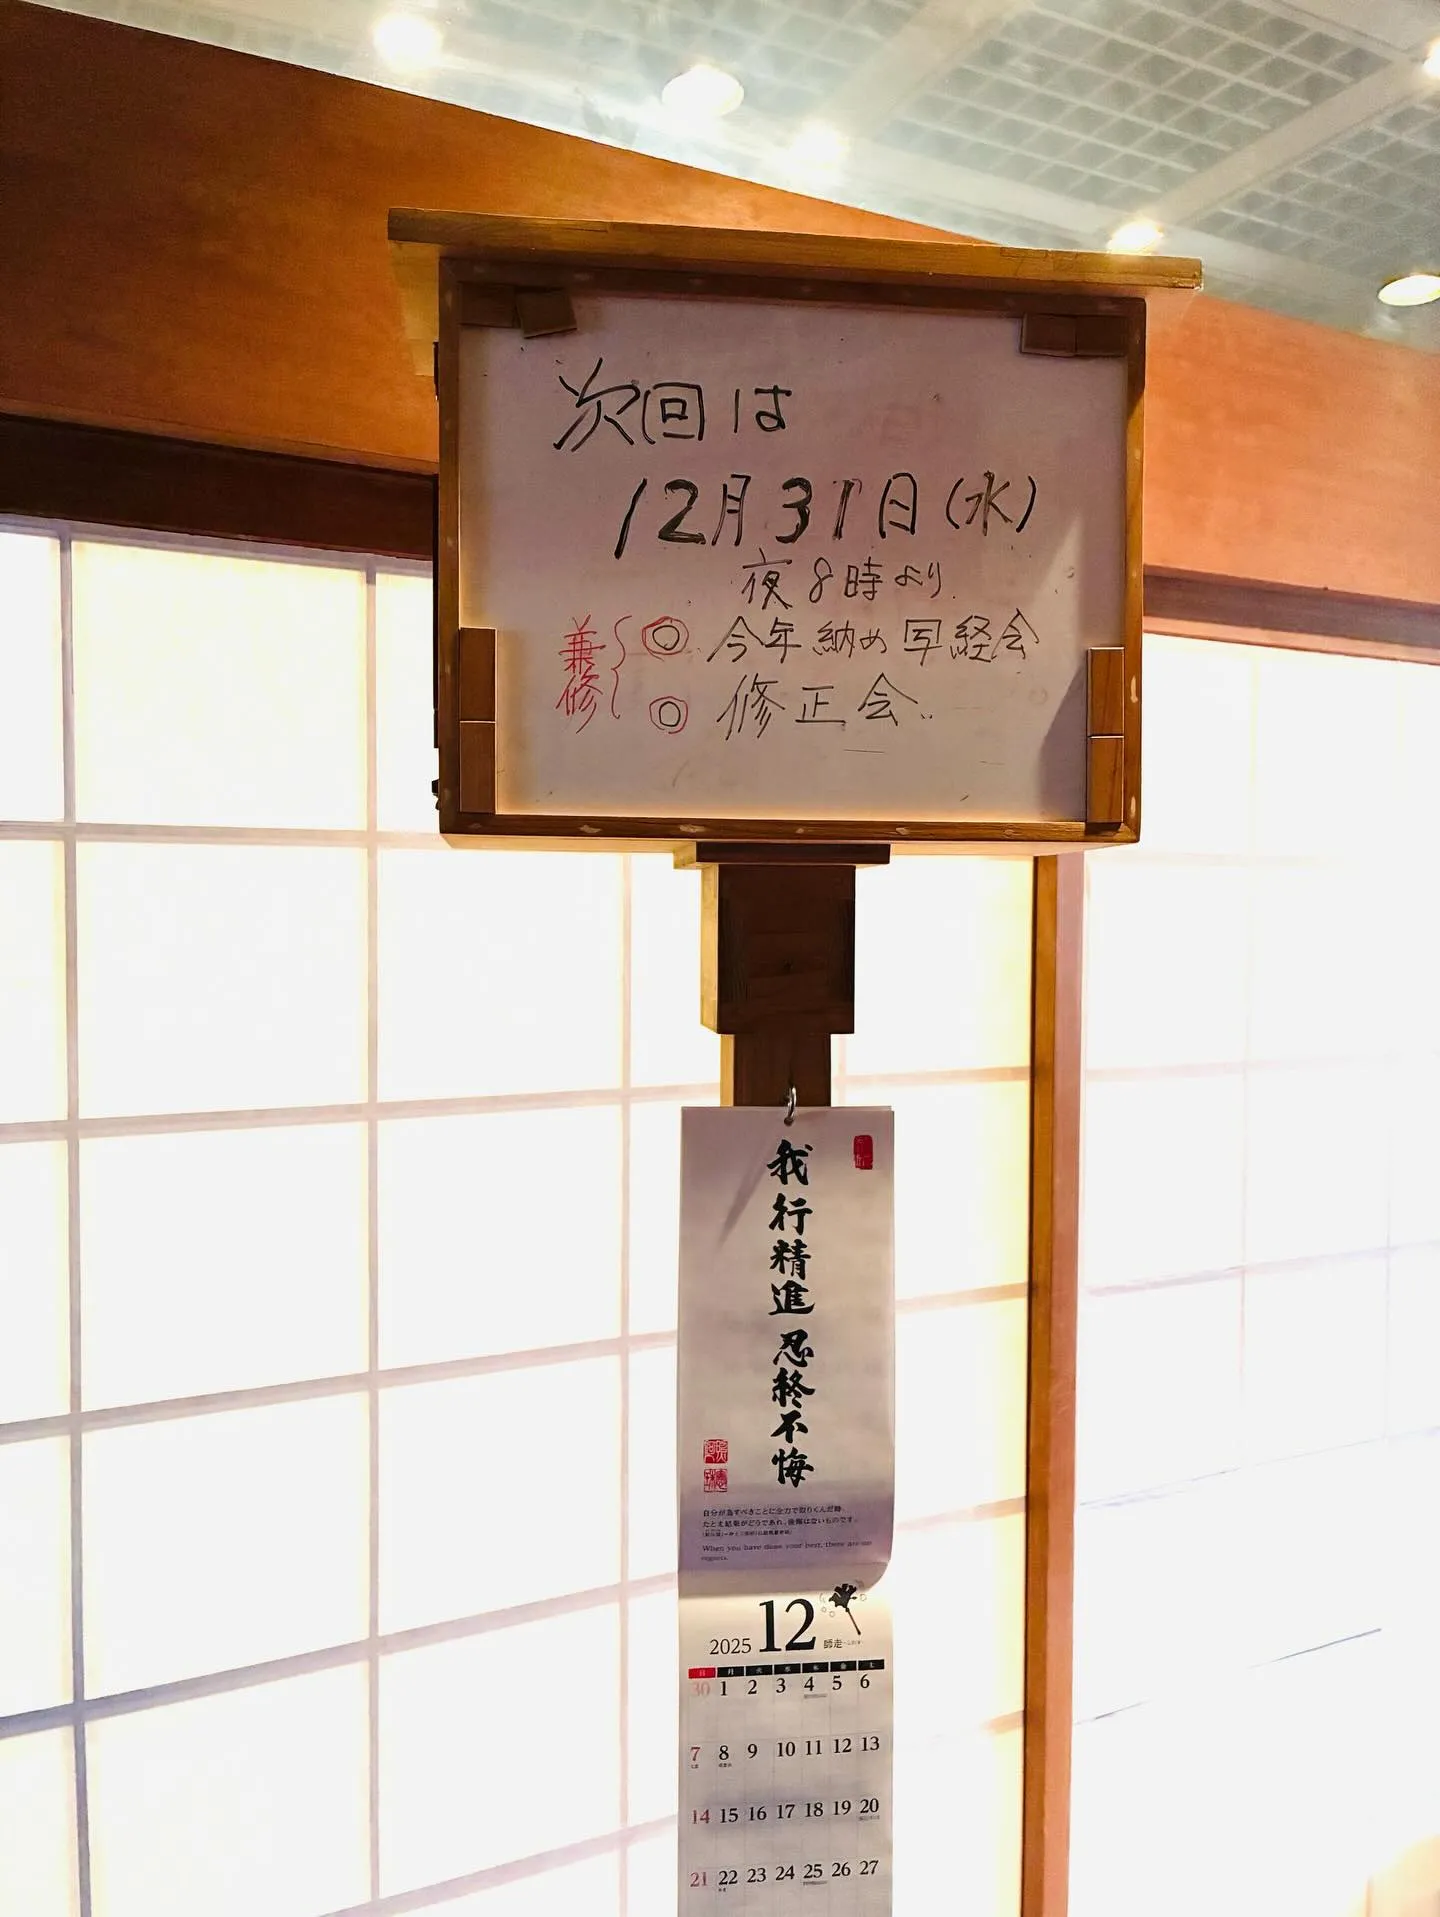 次回は
12月31日(水)
夜8時より
兼修
◎今年納め写経会
◎修正会
我行精進 忍終不悔
自分が為すべきことに全力で取りくんだ時、
たとえ結果がどうであれ、後悔はないものです。
When you have done your best, there are no
regrets.
2025 12 師走
日 月 火 水 木 金 土
30 1 2 3 4 5 6
7 8 9 10 11 12 13
14 15 16 17 18 19 20
21 22 23 24 25 26 27